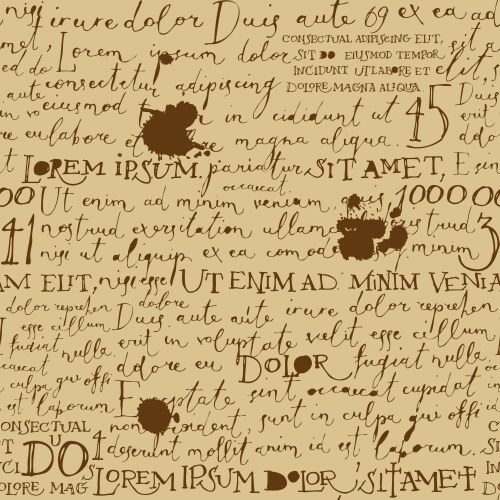 irure dolor Duis aute 69 ex ea
Lorem ipsum dolor
CONSECTUAL ADIPISCING ELIT,
SIT DO EIUSMOD TEMPOR
INCIDUNT UTLABORE ET
DOLORE MAGNA ALIQUA
consectetur adipiscing elit, s
aute eiusmod in cididunt ut 45 Duis
re eu labore et re magna aliqua. dolo
LOREM IPSUM, pariatur, SIT AMET, E
occaecat.
00 Ut enim ad minim veniam, quis 100000
41 nostrud exersitation ullamc trud 3
nisi ut aliquip ex ea comodo minim
AM ELIT, nisi esse UT ENIM AD. MINIM VENIA
dolor reprehen dolore
esse cillum Duis aute aute irure dolor reprehen
fugiat nulla. erit in voluptate velit esse cillum
occaecat dolore eu DOLOR fugiat nulla.
culpa qui offi Exceptate sint occaecat cupidat
est laborum nonident, sunt in culpa qui offi
CONSECTUAL
U 4 deserunt mollit anim id est laborum.
DO LOREM IPSUM DOLOR, SIT AMET
DOLORE MAG